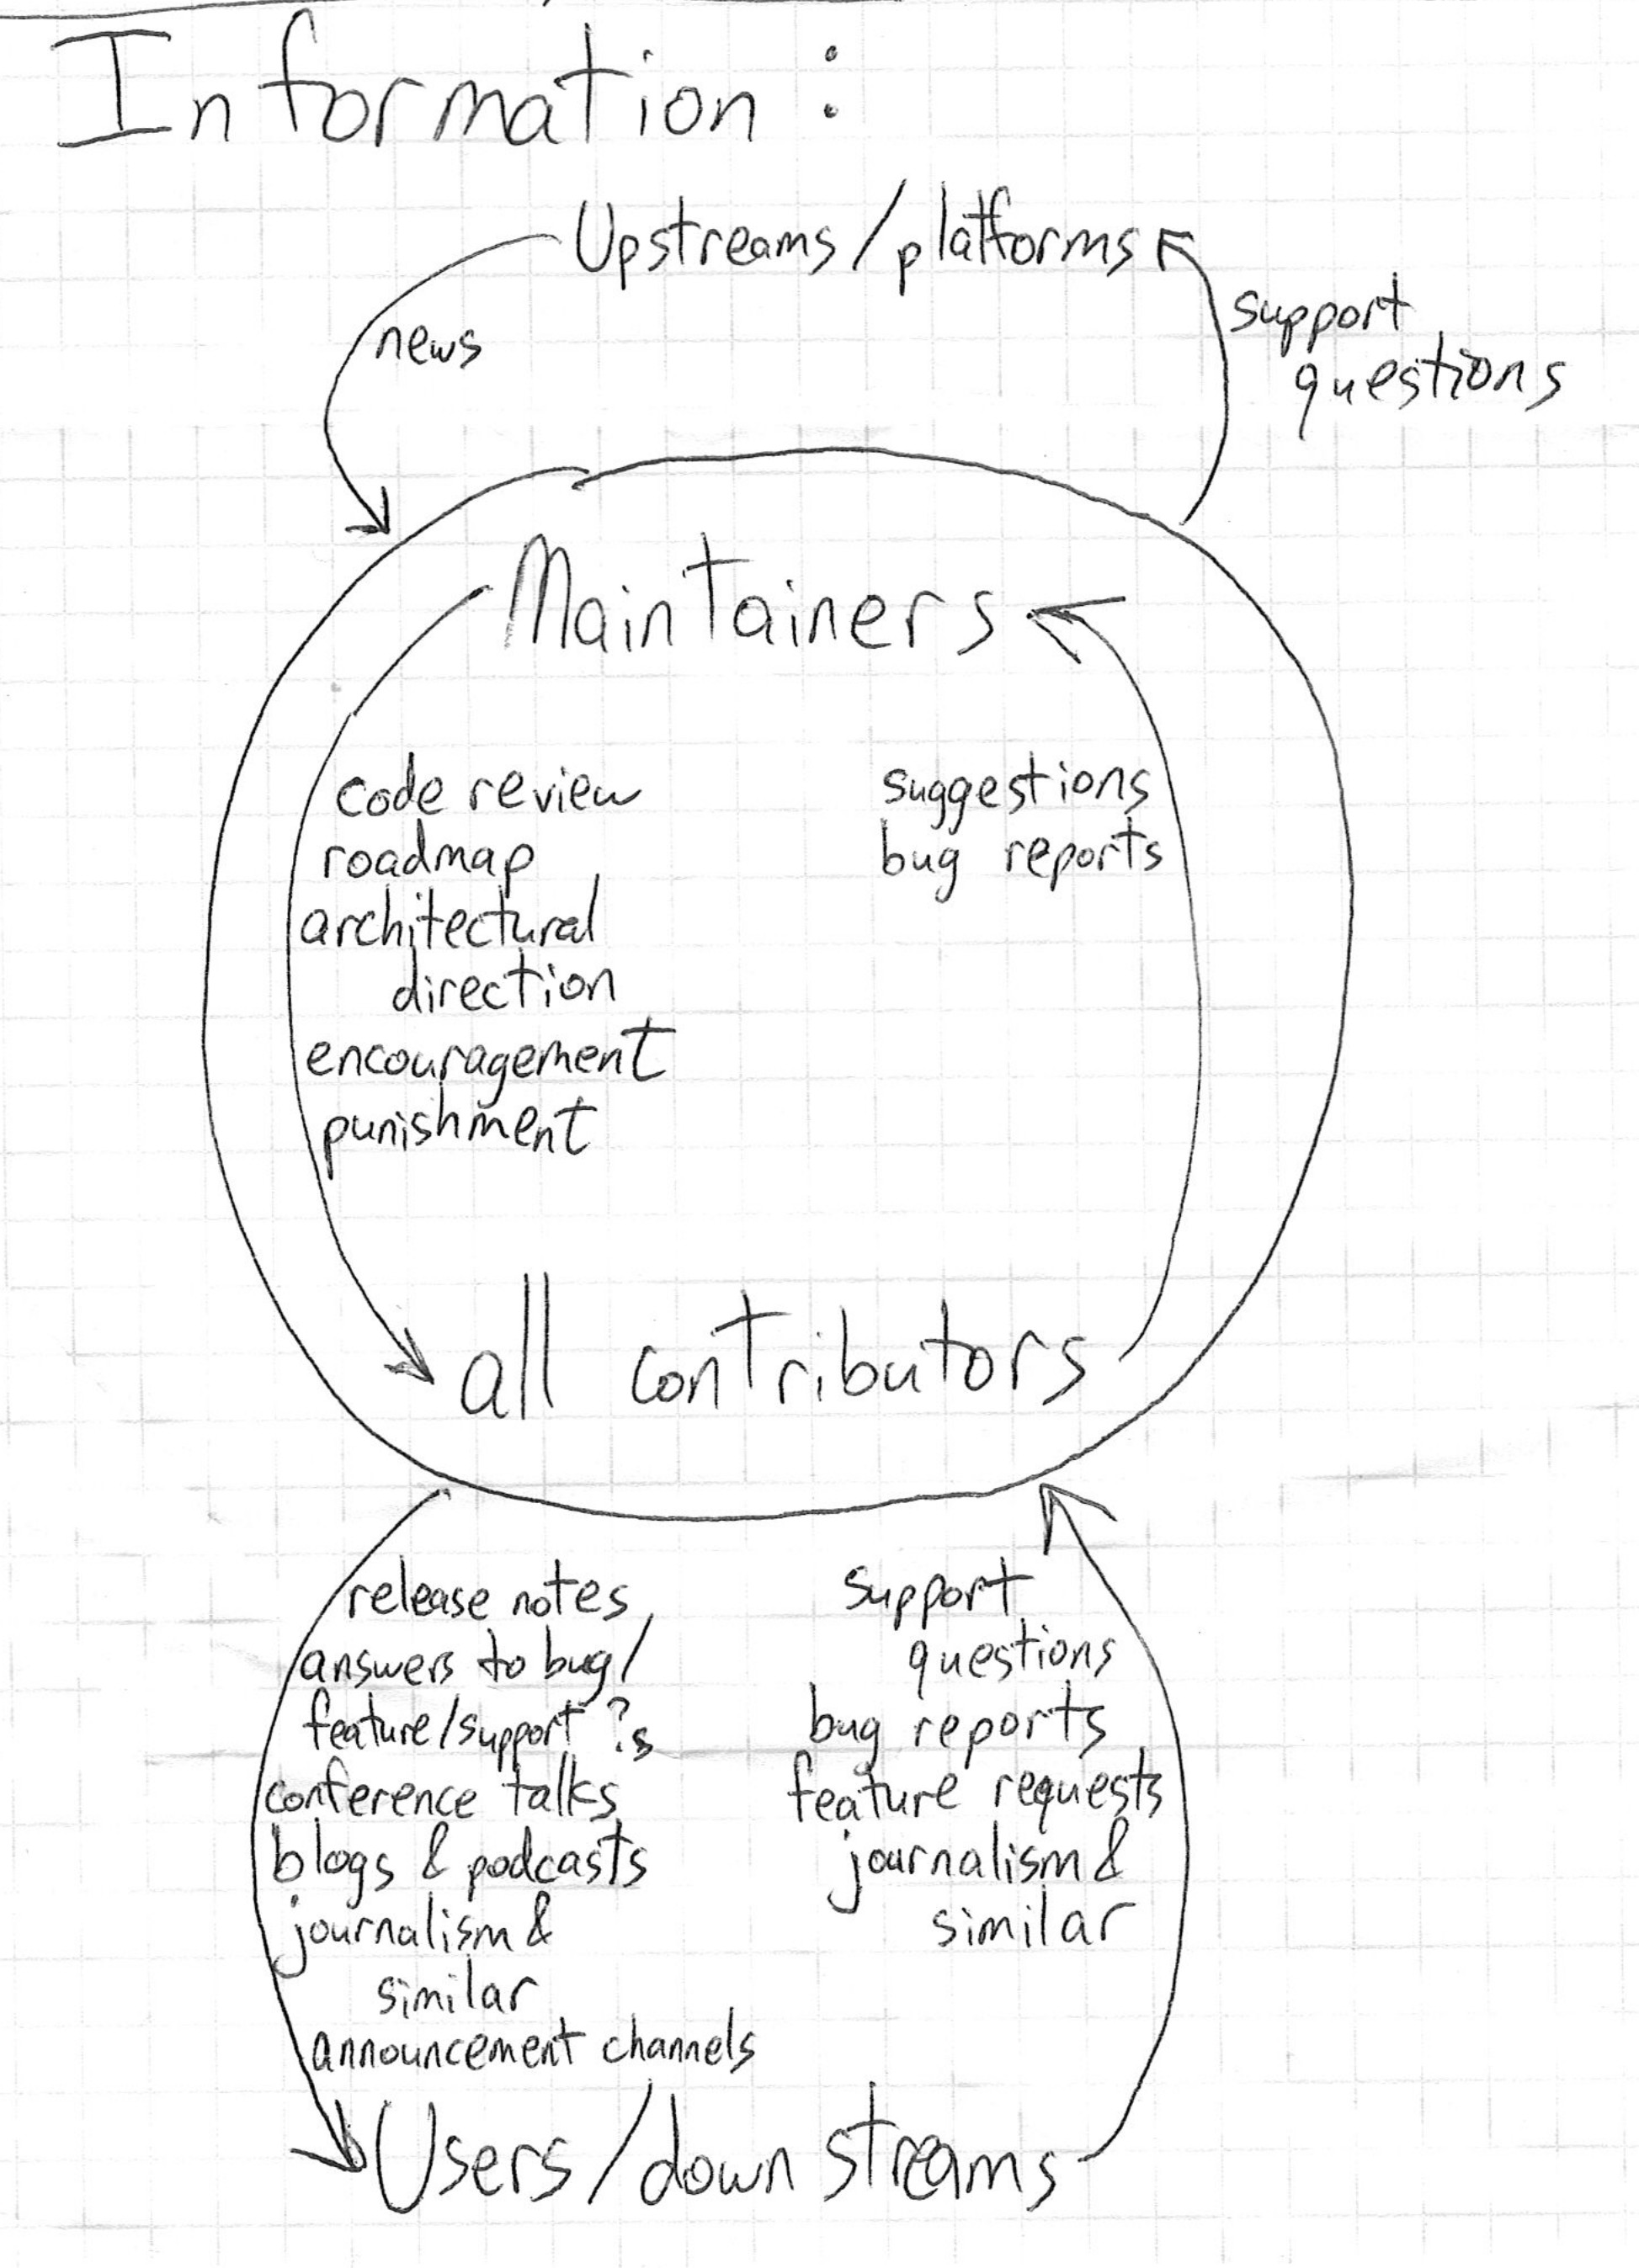 Information:
Upstreams/platforms
news
support
questions
Maintainers
code review
roadmap
architectural
direction
encouragement
punishment
suggestions
bug reports
all contributors
release notes,
answers to bug/
feature/support ?s
conference talks
blogs & podcasts
journalism &
similar
announcement channels
support
questions
bug reports
feature requests
journalism &
similar
Users/downstreams